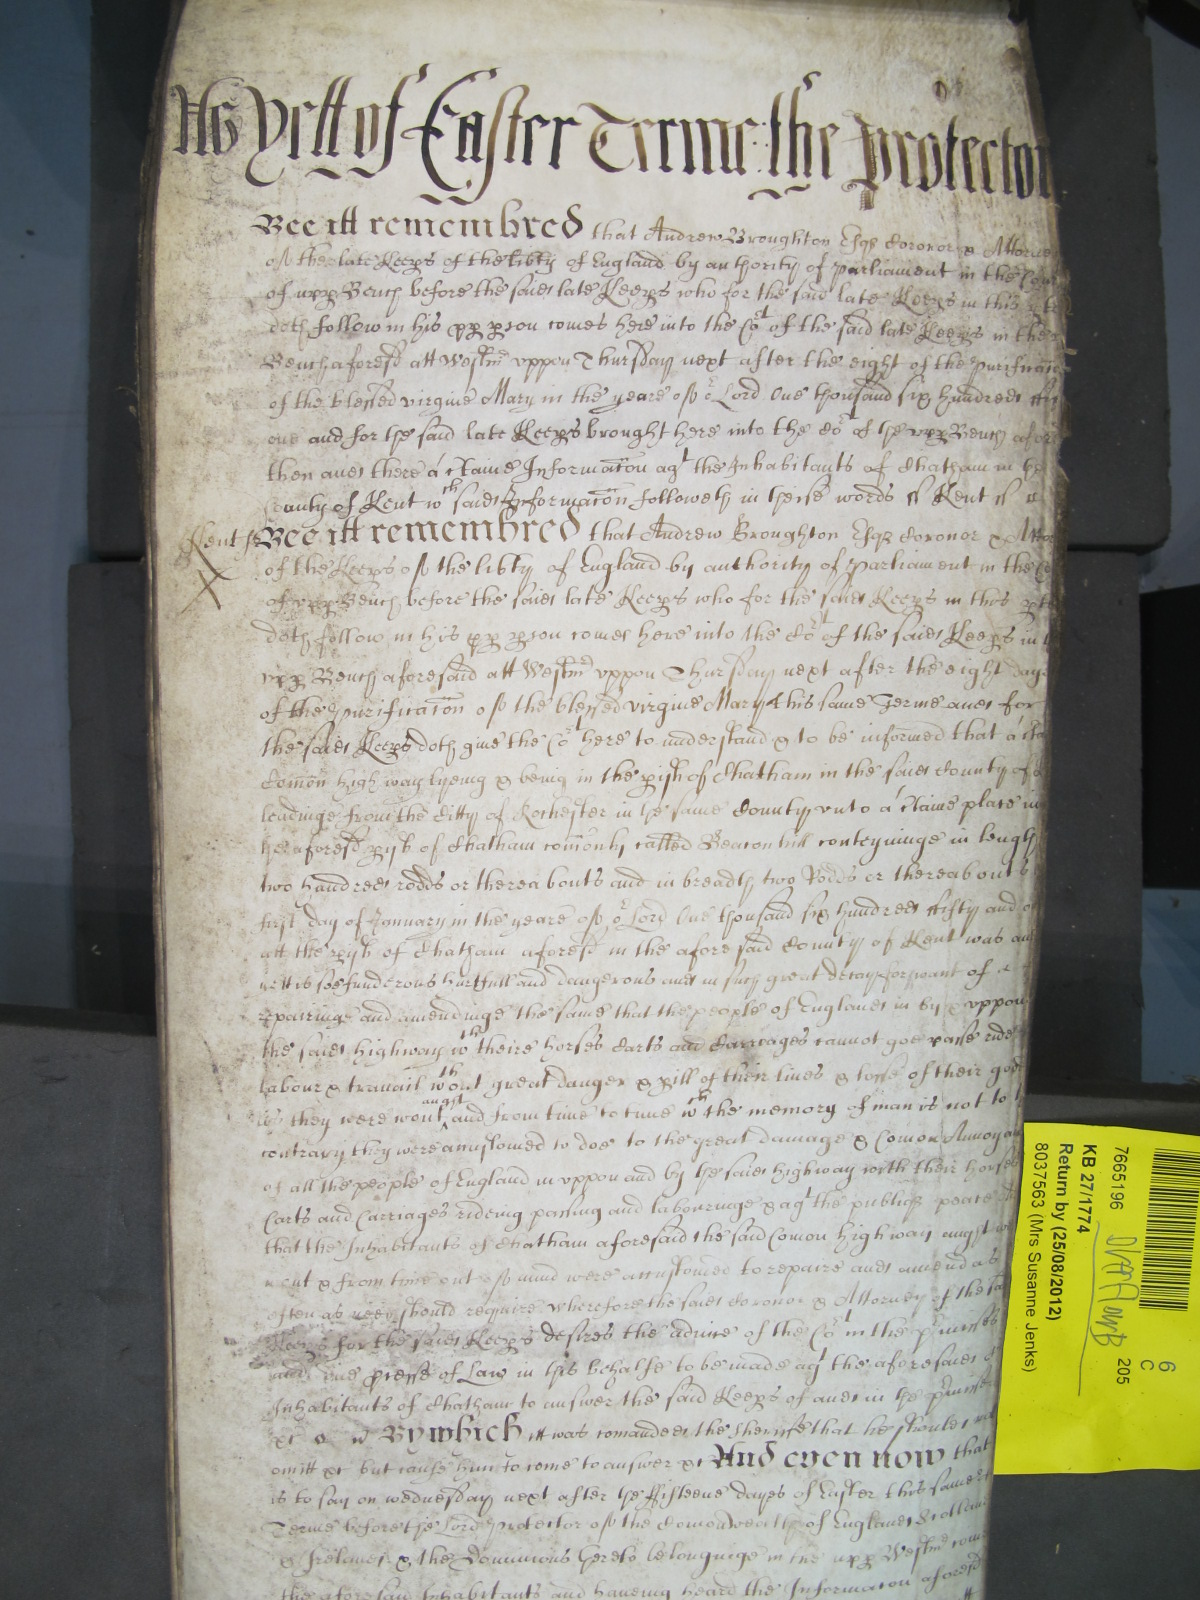 As yett of Easter Terme: the protector
Bee itt remembred that Andrew Broughton Esqr Coronor & Attorney
of the late Keeps of the libty of England by authority of parliament in the
of upp Bench before the said late Keeps who for the said late Keeps in this
doth follow in his pp pson comes here into the Cort of the said late Keeps in the
Bench aforesd att Westmr uppon Thursday next after the eight of the purificac
of the blessed virgine Mary in the yeare of or Lord One thousand six hundred
one and for the said late Keeps brought here into the Cort of the upp Bench afore
then and there a ctaine Informacon agt the Inhabitants of Chatham in
County of Kent wch said Informacon followeth in theise words ss Kent ss
Kent ss Bee itt remembred that Andrew Broughton Esqr Coronor & Attor
of the Keeps of the libty of England by authority of parliament in the
of upp Bench before the said late Keeps who for the said Keeps in this
doth follow in his pp pson comes here into the Cort of the said Keeps in
upp Bench aforesaid att Westmr uppon Thursday next after the eight day
of the purificacon of the blessed virgine Mary this same Terme and for
the said Keeps doth give the Cort here to understand & to be informed that a cta
Comon high way lyeing & being in the pish of Chatham in the said County of
leadinge from the Citty of Rochester in the same County unto a ctaine place in
the aforesd pish of Chatham comonly called Beacon hill conteyninge in length
two hundred rodds or thereabouts and in breadth two Rodds or thereabouts
first day of January in the yeare of or Lord One thousand six hundred fifty and
att the pish of Chatham aforesd in the aforesaid County of Kent was and
yett is soe funderous hurtfull and dangerous and in such great decay for want of
repairinge and amendinge the same that the people of England in by & uppon
the said highway wth theire horses Carts and Carriages cannot goe passe ride
labour & travail wthout great danger & pill of their lives & losse of their goo
as they were wont augst and from time to time wch the memory of man is not to
contrary they were accustomed to doe to the great damage & Comon Annoyan
of all the people of England in uppon and by the said highway with their horses
Carts and Carriages rideing passing and labouringe & agt the publiq peace
that the Inhabitants of Chatham aforesaid the said Comon highway
& from time out of mind were accustomed to repaire and amend as
often as need should require Wherefore the said Coronor & Attorney of the sa
Keeps for the said Keeps desires the advice of the Cort in the pmisses
and due pcesse of Law in this behalfe to be made agt the aforesaid
Inhabitants of Chatham to answer the said Keeps of and in the pmisses
&c By which itt was comanded the sheriffe that he should
omitt &c but cause him to come to answer &c And even now that
is to say on wednesday next after the fifteene dayes of Easter this same
Terme before the Lord protector of the Comonwealth of England Scotland
& Ireland & the Dominions thereto belonginge in the upp Westmr
the aforesaid Inhabitants and haveing heard the Informacon aforesd
7665196
KB 27/1774
Return by (25/08/2012)
8037563 (Mrs Susanne Jenks)
6
C
205